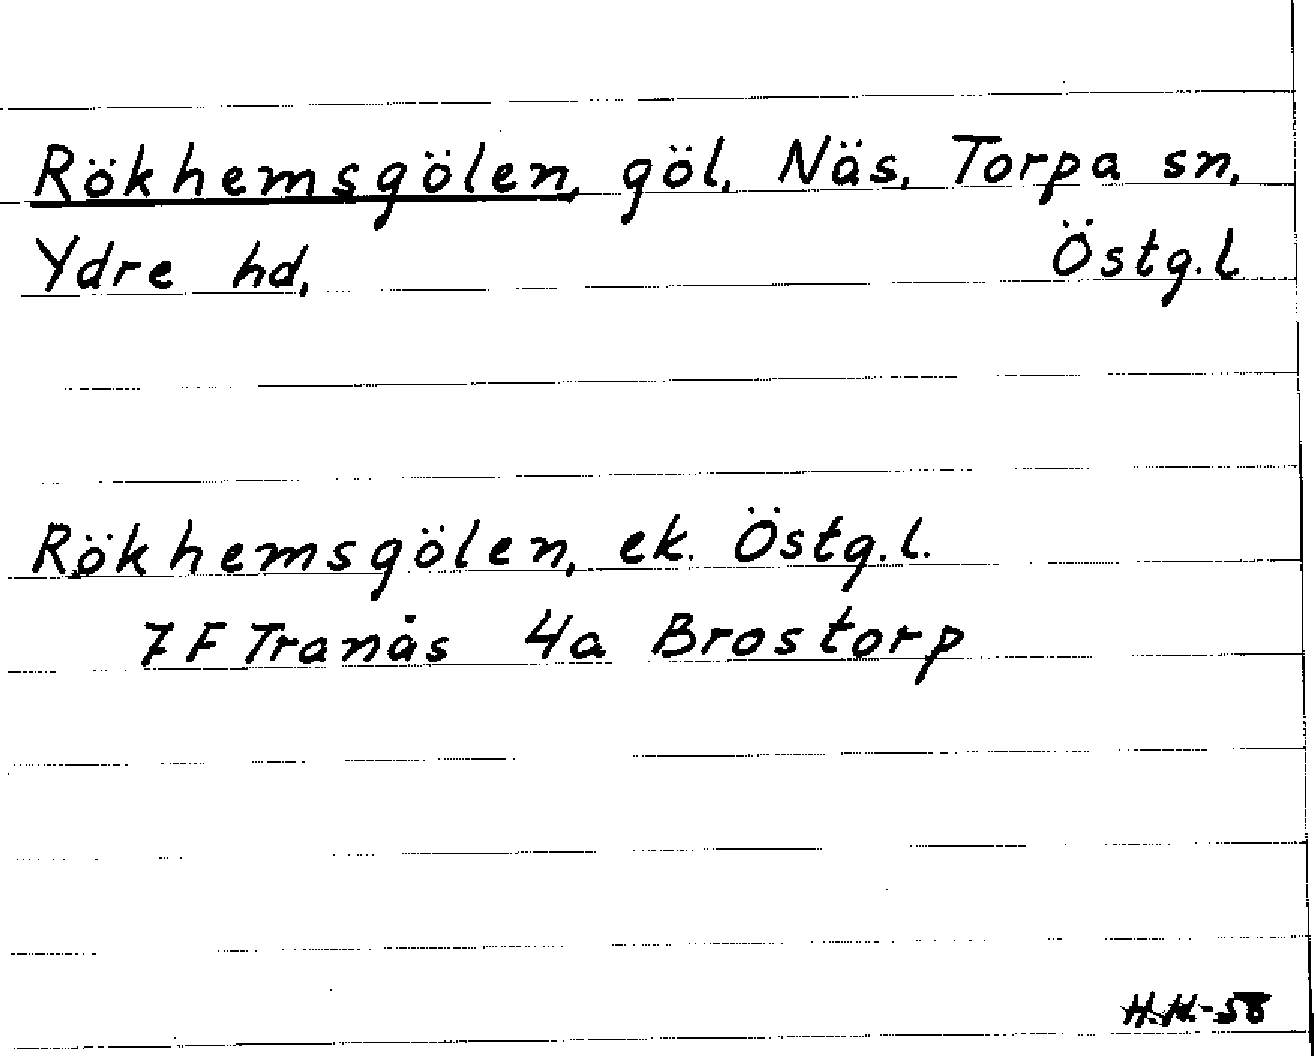 Rökhemsgölen, göl, Näs, Torpa sn,
Ydre hd, Östg.l
Rökhemsgölen, ek. Östg.l.
7 F Tranås 4a Brostorp
H.H.-58